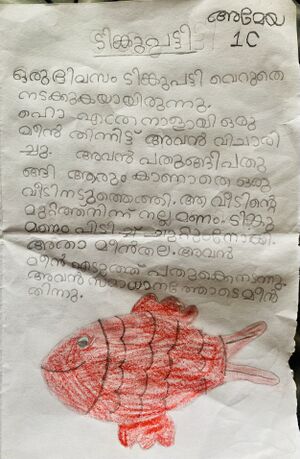 അമേയ
1C
ടിങ്കുപട്ടി
ഒരു ദിവസം ടിങ്കുപട്ടി വെറുതെ
നടക്കുകയായിരുന്നു.
ഹൊ എത്ര നാളായി ഒരു
മീൻ തിന്നിട്ട് അവൻ വിചാരി
ച്ചു. അവൻ പതുങ്ങിപതു
ങ്ങി ആരും കാണാതെ ഒരു
വീടിനടുത്തെത്തി. ആ വീടിന്റെ
മുറ്റത്തുനിന്ന് നല്ല മണം. ടിങ്കു
മണം പിടിച്ച് ചുറ്റും നോക്കി.
അതാ മീൻതല. അവൻ
മീൻ എടുത്ത് പതുക്കെ നടന്നു.
അവൻ സമാധാനത്തോടെ മീൻ
തിന്നു.